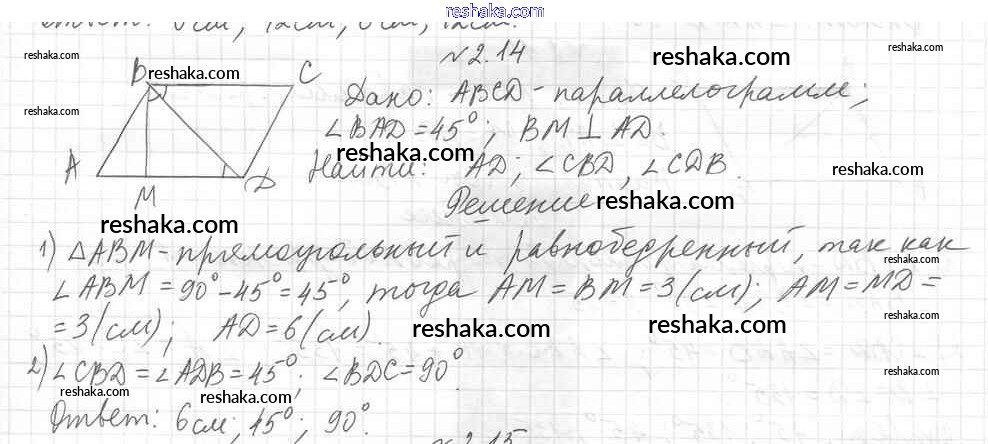 reshaka.com
Ответ: 6см, 12см, 6см, 12см.
№2.14
reshaka.com
reshaka.com
reshaka.com
B
reshaka.com
C
Дано: ABCD - параллелограмм;
reshaka.com
∠BAD = 45°; BM ⊥ AD.
reshaka.com
A
M
D
Найти: AD; ∠CBD, ∠CDB.
reshaka.com
Решение
reshaka.com
reshaka.com
1) △ABM - прямоугольный и равнобедренный, так как
reshaka.com
∠ABM = 90° - 45° = 45°, тогда AM = BM = 3 (см); AM = MD =
= 3 (см); AD = 6 (см).
reshaka.com
reshaka.com
reshaka.com
reshaka.com
2) ∠CBD = ∠ADB = 45°; ∠BDC = 90°.
reshaka.com
reshaka.com
reshaka.com
Ответ: 6 см, 45°; 90°.
reshaka.com
reshaka.com
№2.15